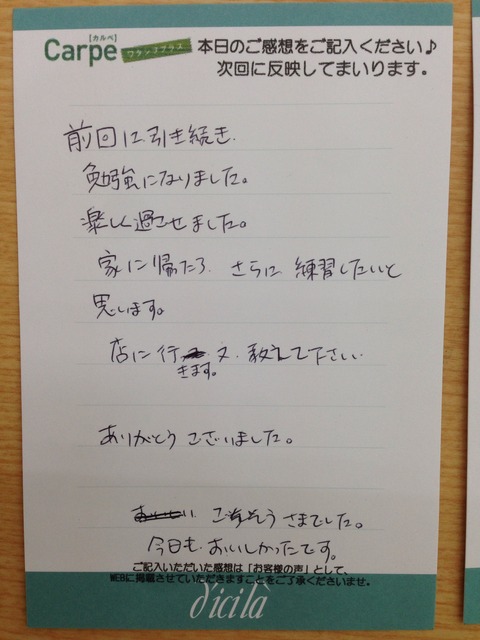 [カルペ]
Carpe ワタシプラス 本日のご感想をご記入ください♪
次回に反映してまいります。
前回に引き続き、
勉強になりました。
楽しく過させました。
家に帰たら、さらに練習したいと
思います。
店に行きます。又、教えて下さい
ありがとうございました。
ご馳そうさまでした。
今日も、おいしかったです。
ご記入いただいた感想は「お客様の声」として、
WEBに掲載させていただきますことをご了承くださいませ。
dicila